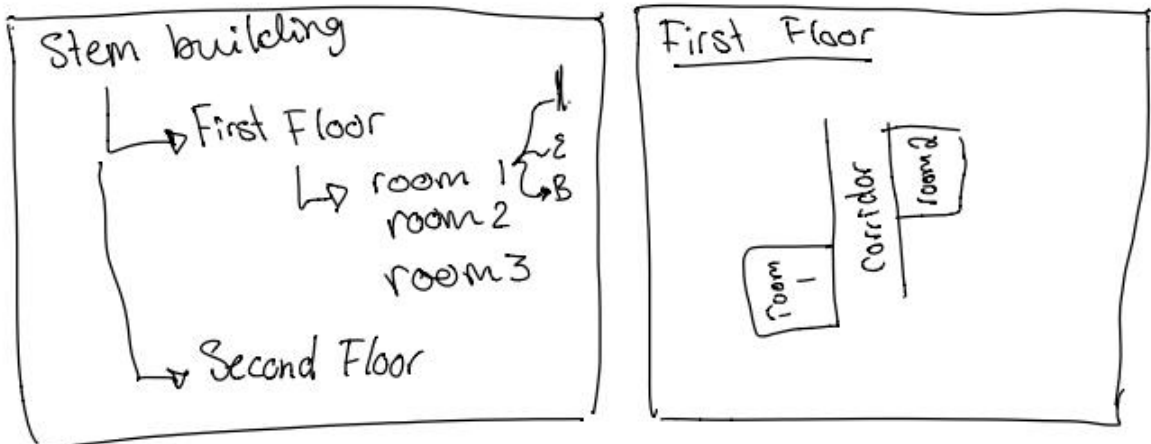 Stem building
First Floor
room 1
B
room 2
room 3
Second Floor
First Floor
corridor
room 2
room 1